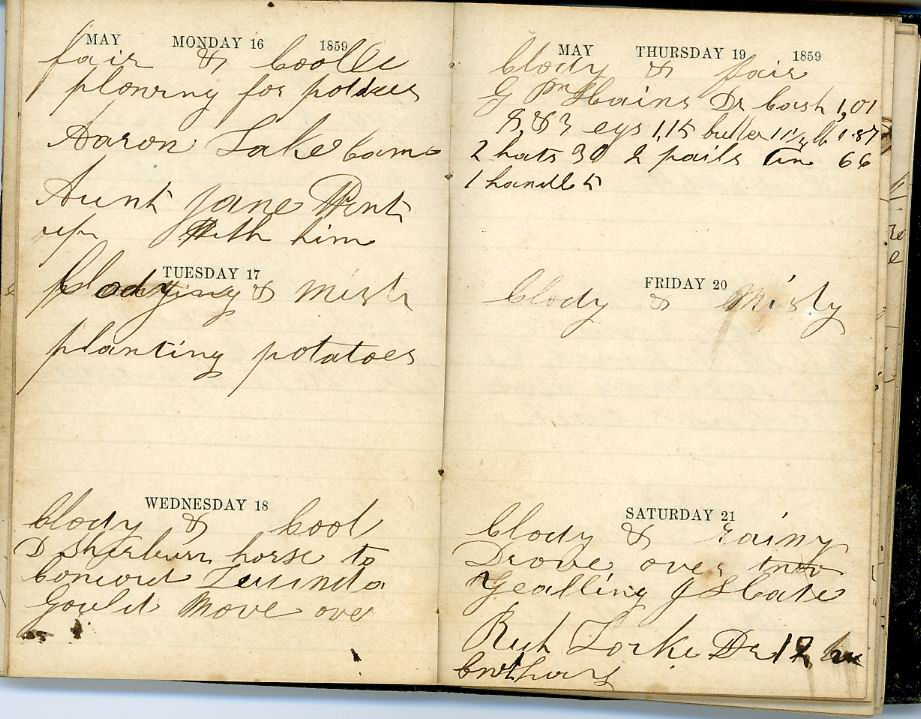 MAY MONDAY 16 1859
fair & coolle
ploning for potatoes
Aaron Lake came
Aunt Jane Went
up With him
TUESDAY 17
clody & misty
planting potatoes
WEDNESDAY 18
Clody & Cool
D Sherburn horse to
Concord Lucinda
Gould Move over
MAY THURSDAY 19 1859
Clody & fair
G Hains Dr Cash 1,01
egs 1,15 butter 187
2 hats 30 2 pails tin 66
1 handle
FRIDAY 20
Clody & Misty
SATURDAY 21
Clody & rainy
Drove over two
Yealling J S Cate
Locke Dr 12